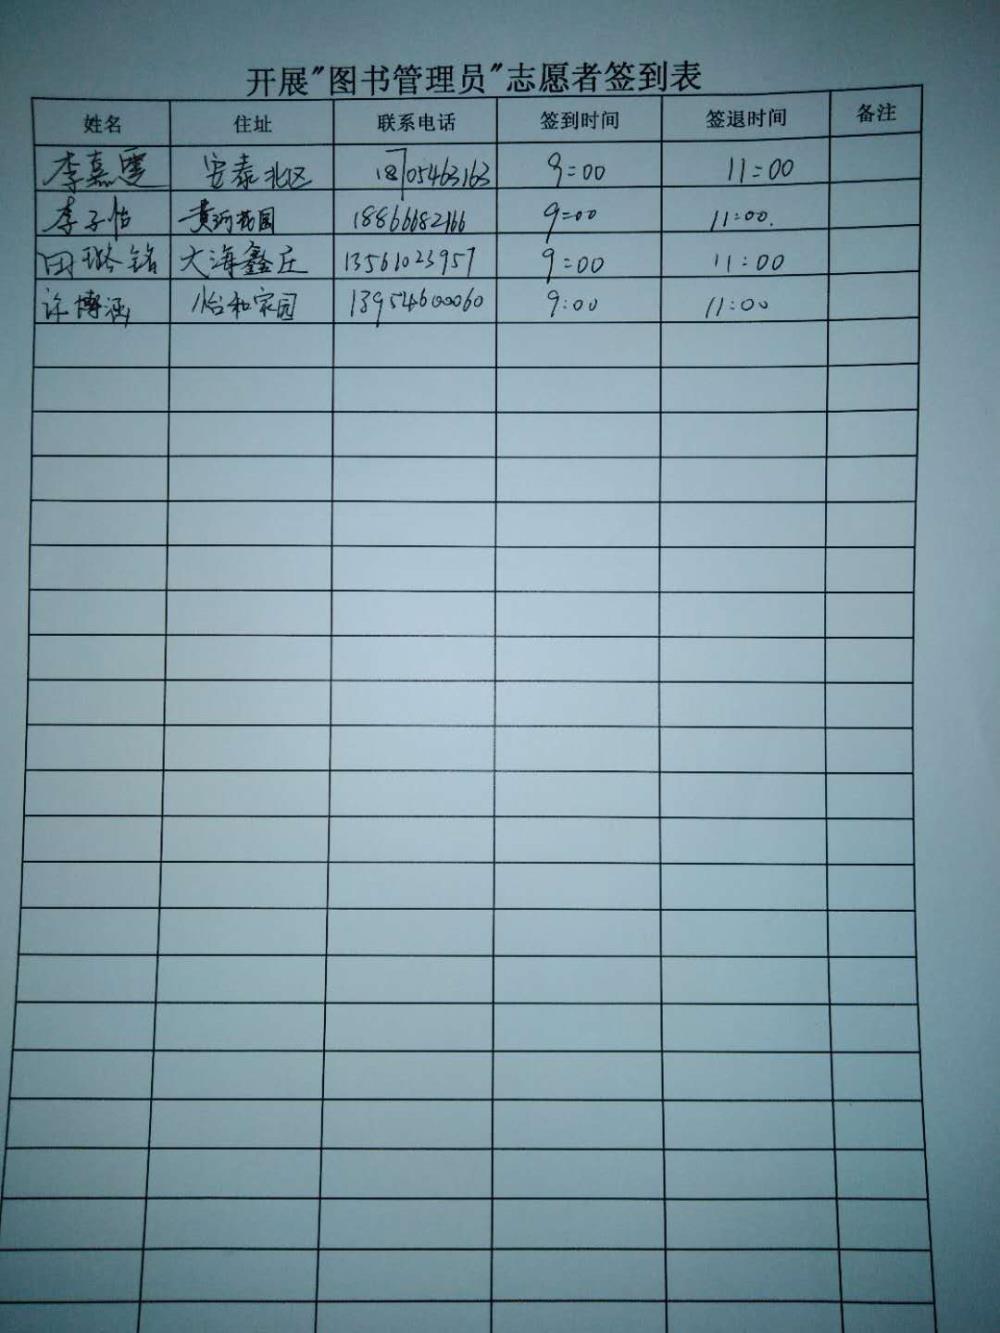 开展"图书管理员"志愿者签到表
姓名 住址 联系电话 签到时间 签退时间 备注
李嘉雯 安泰北区 18705463163 9:00 11:00
李子怡 黄河花园 18866682166 9:00 11:00.
田璐铭 大海鑫庄 13561023957 9:00 11:00
许博涵 怡和家园 13954600060 9:00 11:00